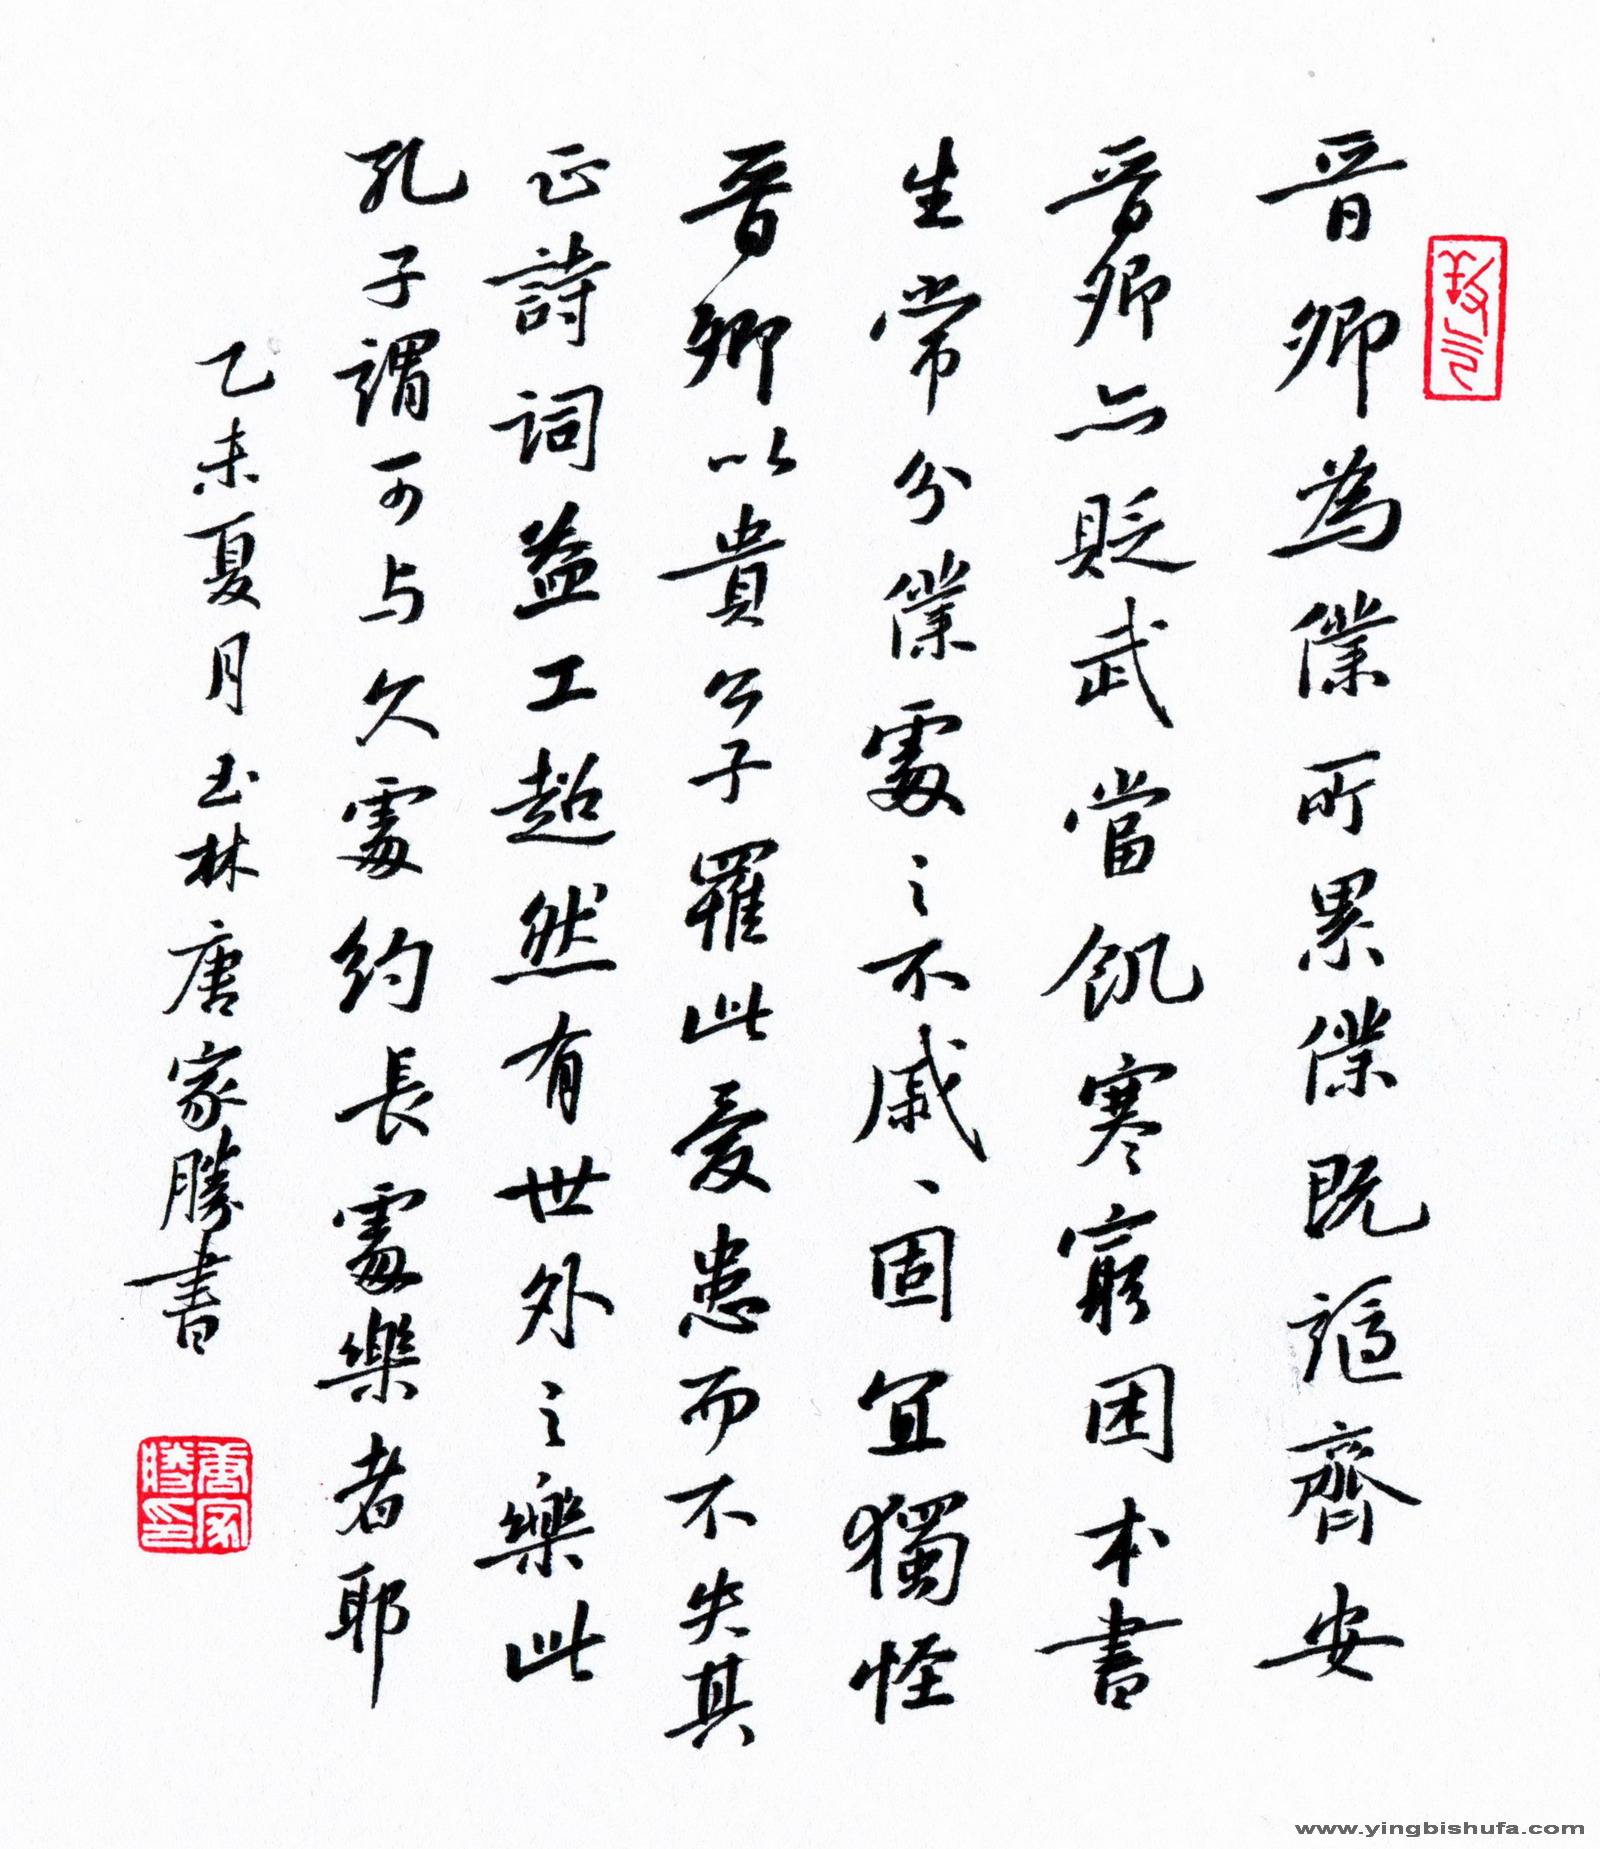 晋卿為僕所累僕既謫齊安
晋卿亦貶武當飢寒窮困本書
生常分僕處之不戚、固宜獨怪
晋卿以貴公子罹此憂患而不失其
正詩詞益工超然有世外之樂此
孔子謂可与久處約長處樂者耶
乙未夏月玉林唐家勝書
唐家勝印
www.yingbishufa.com